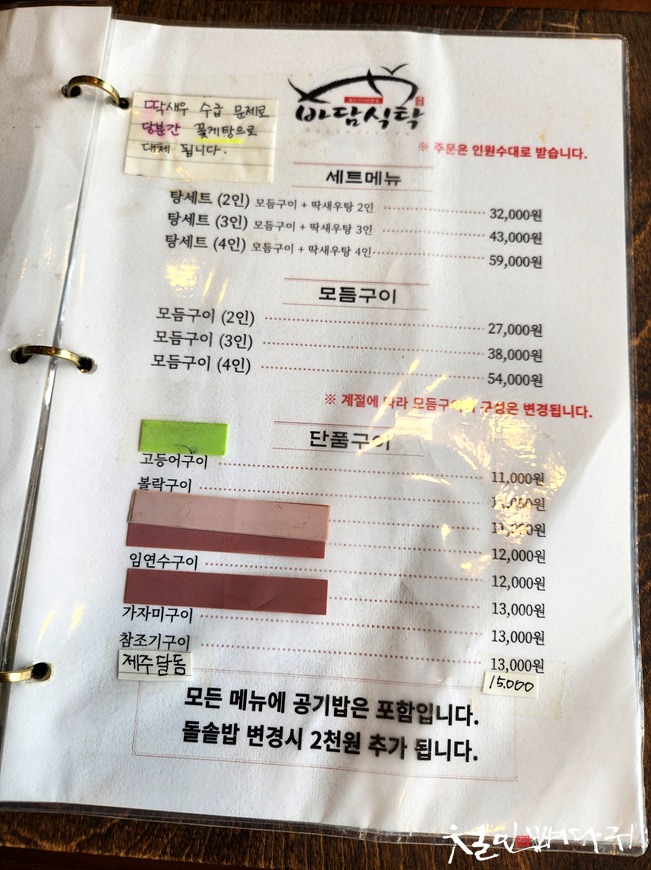 딱새우 수급 문제로
당분간 꽃게탕으로
대체 됩니다.
바담식탁
※ 주문은 인원수대로 받습니다.
세트메뉴
탕세트 (2인) 모듬구이 + 딱새우탕 2인 32,000원
탕세트 (3인) 모듬구이 + 딱새우탕 3인 43,000원
탕세트 (4인) 모듬구이 + 딱새우탕 4인 59,000원
모듬구이
모듬구이 (2인) 27,000원
모듬구이 (3인) 38,000원
모듬구이 (4인) 54,000원
※ 계절에 따라 모듬구이 구성은 변경됩니다.
단품구이
고등어구이 11,000원
볼락구이
12,000원
임연수구이 12,000원
13,000원
가자미구이 13,000원
참조기구이 13,000원
제주달돔 15.000
모든 메뉴에 공기밥은 포함입니다.
돌솥밥 변경시 2천원 추가 됩니다.